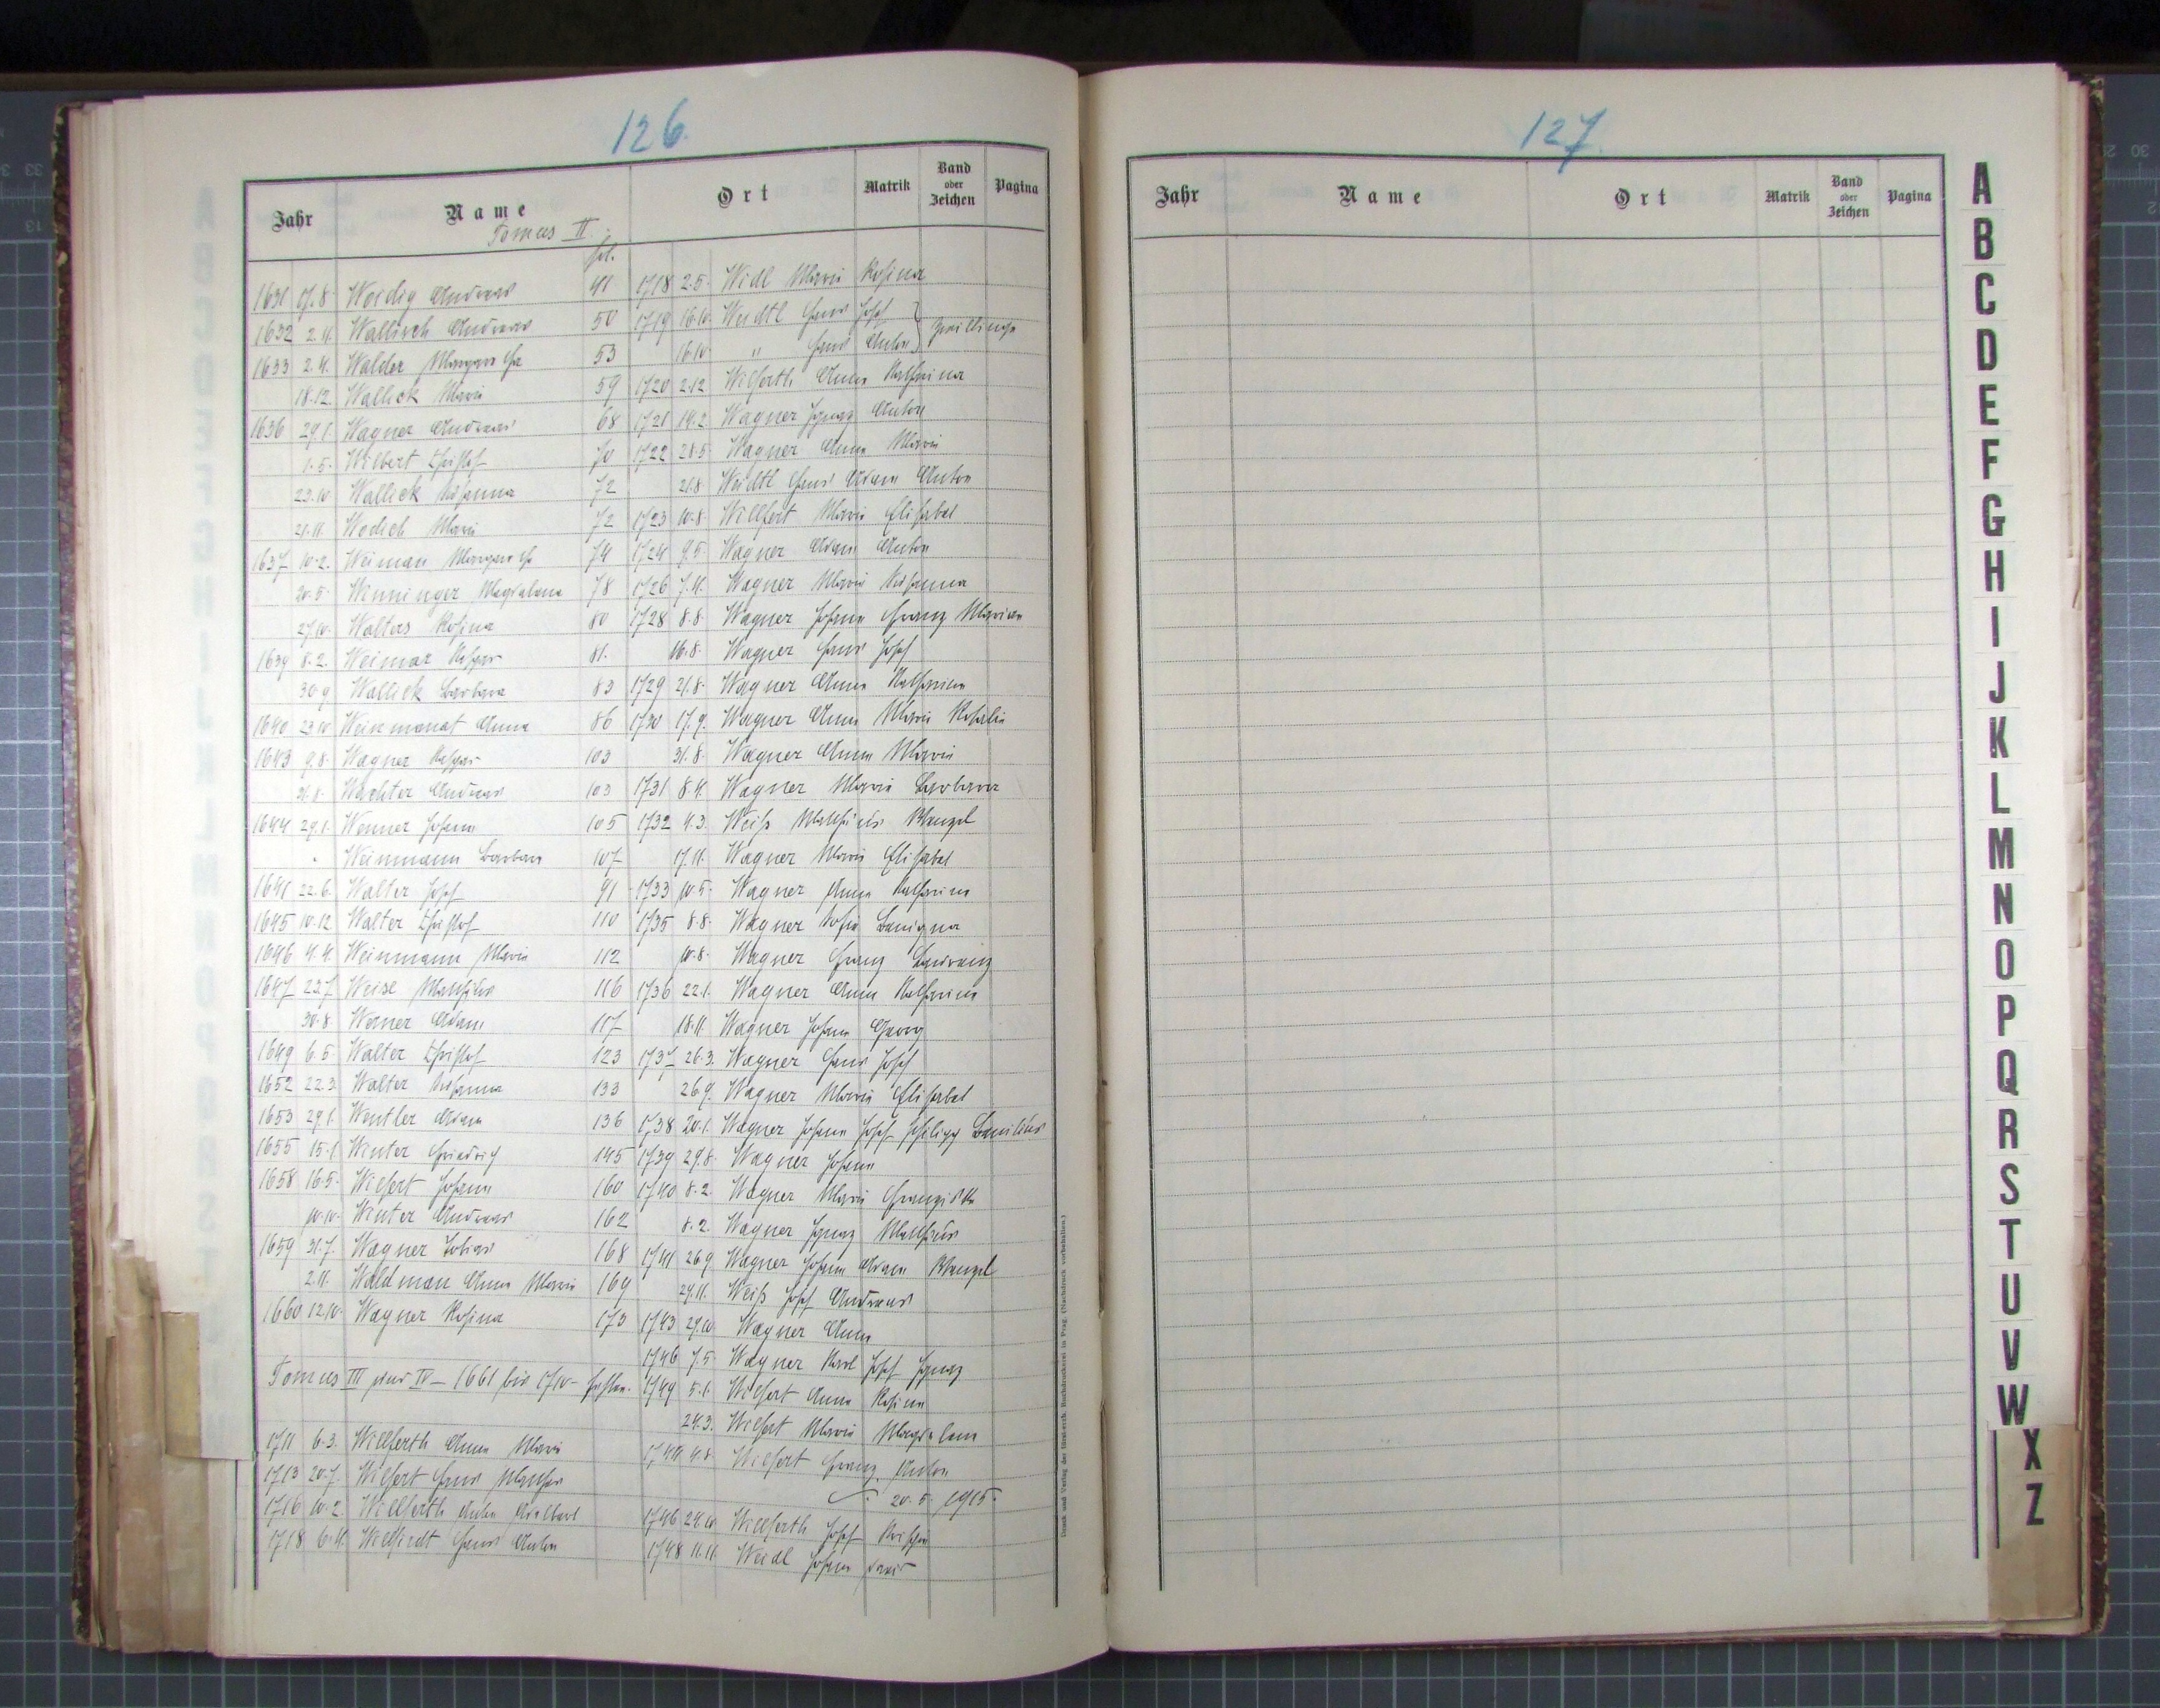 126.
Jahr Name Ort Matrik Band oder Zeichen Pagina
Tomus II.
fol.
1631 17.8. Weidig Andreas 41
1632 2.4. Wallisch Andreas 50
1633 2.4. Walder Margaretha 53
18.12. Wallick Maria 59
1636 29.1. Wagner Andreas 68
1.5. Wilbert Christof 70
23.10. Wallick Susanna 72
21.11. Wodich Maria 72
1637 10.2. Weiman Margaretha 74
20.5. Winninger Magdalena 78
27.10. Walters Rosina 80
1639 8.2. Weimar Kaspar 81.
30.9. Wallick Barbara 83
1640 23.10. Weinmanat Anna 86
1643 9.8. Wagner Kaspar 103
31.8. Wachter Andreas 103
1644 29.1. Wenner Johann 105
" Weinmann Barbara 107
1641 22.6. Walter Josef 91
1645 10.12. Walter Christof 110
1646 4.4. Weinmann Maria 112
1647 23.7. Weise Matthäus 116
30.8. Werner Adam 117
1649 6.5. Walter Christof 123
1652 22.3. Walter Susanna 133
1653 29.1. Wentler Adam 136
1655 15.1. Winter Friedrich 145
1658 16.5. Wilfert Johann 160
10.10. Winter Andreas 162
1659 31.7. Wagner Tobias 168
2.11. Waldman Anna Maria 169
1660 12.10. Wagner Rosina 173
Tomus III und IV – 1661 bis 1710 – fehlen.
1711 6.3. Willferth Anna Maria
1713 20.7. Wilfert Hans
1716 10.2. Willferth Anton Adalbert
1718 6.4. Willfirdt Hans Anton
1718 2.5. Widl Maria Rosina
1719 16.10. Weidtl Hans Josef
16.10. " Hans Anton } Zwillinge
1720 2.12. Wilferth Anna Katharina
1721 14.2. Wagner Ignaz Anton
1722 28.5. Wagner Anna Maria
21.8. Weidtl Hans Adam Anton
1723 10.8. Willfert Maria Elisabet
1724 9.5. Wagner Adam Anton
1726 7.4. Wagner Maria Susanna
1728 8.8. Wagner Johann Franz Marian
16.8. Wagner Hans Josef
1729 21.8. Wagner Anna Katharina
1730 17.9. Wagner Anna Maria Rosalia
31.8. Wagner Anna Maria
1731 8.4. Wagner Maria Barbara
1732 4.3. Weiß Matthäus Wenzel
17.11. Wagner Maria Elisabet
1733 10.5. Wagner Anna Katharina
1735 8.8. Wagner Sofia Benigna
10.8. Wagner Franz Laurenz
1736 22.1. Wagner Anna Katharina
18.11. Wagner Johann Georg
1737 26.3. Wagner Hans Josef
26.9. Wagner Maria Elisabet
1738 20.1. Wagner Johann Josef Philipp
1739 29.8. Wagner Johann
1740 8.2. Wagner Maria Franziska
8.2. Wagner Ignaz Matthäus
1741 26.9. Wagner Johann Adam Wenzel
29.11. Weiß Josef Andreas
1743 29.10. Wagner Anna
1746 7.5. Wagner Karl Josef Ignaz
1749 5.1. Wilfert Anna Rosina
24.3. Wilfert Maria Magdalena
1744 4.8. Wilfert Franz Anton
20.5. 1915.
1746 24.10. Willferth Josef
1748 11.11. Weidl Johann
Druck und Verlag der fürsterzb. Buchdruckerei in Prag. (Nachdruck vorbehalten.)
127.
Jahr Name Ort Matrik Band oder Zeichen Pagina
A
B
C
D
E
F
G
H
I
J
K
L
M
N
O
P
Q
R
S
T
U
V
W
X
Z